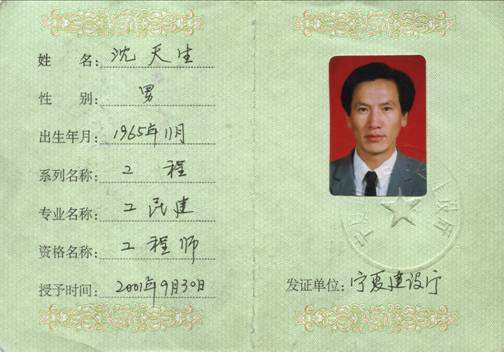 姓 名: 沈天生
性 别: 男
出生年月: 1965年11月
系列名称: 工 程
专业名称: 工民建
资格名称: 工程师
授予时间: 2001年9月30日
发证单位: 宁夏建设厅